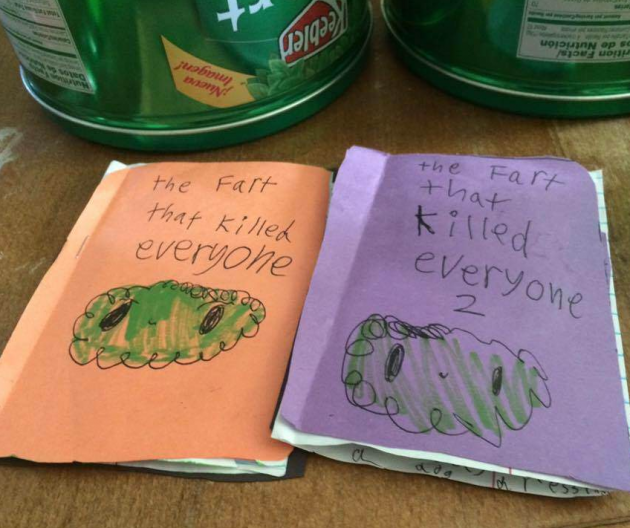 Keebler
¡Nueva
Imagen!
Nutrition Facts/
Datos de Nutrición
the Fart
that killed
everyone
the Fart
that
killed
everyone
2